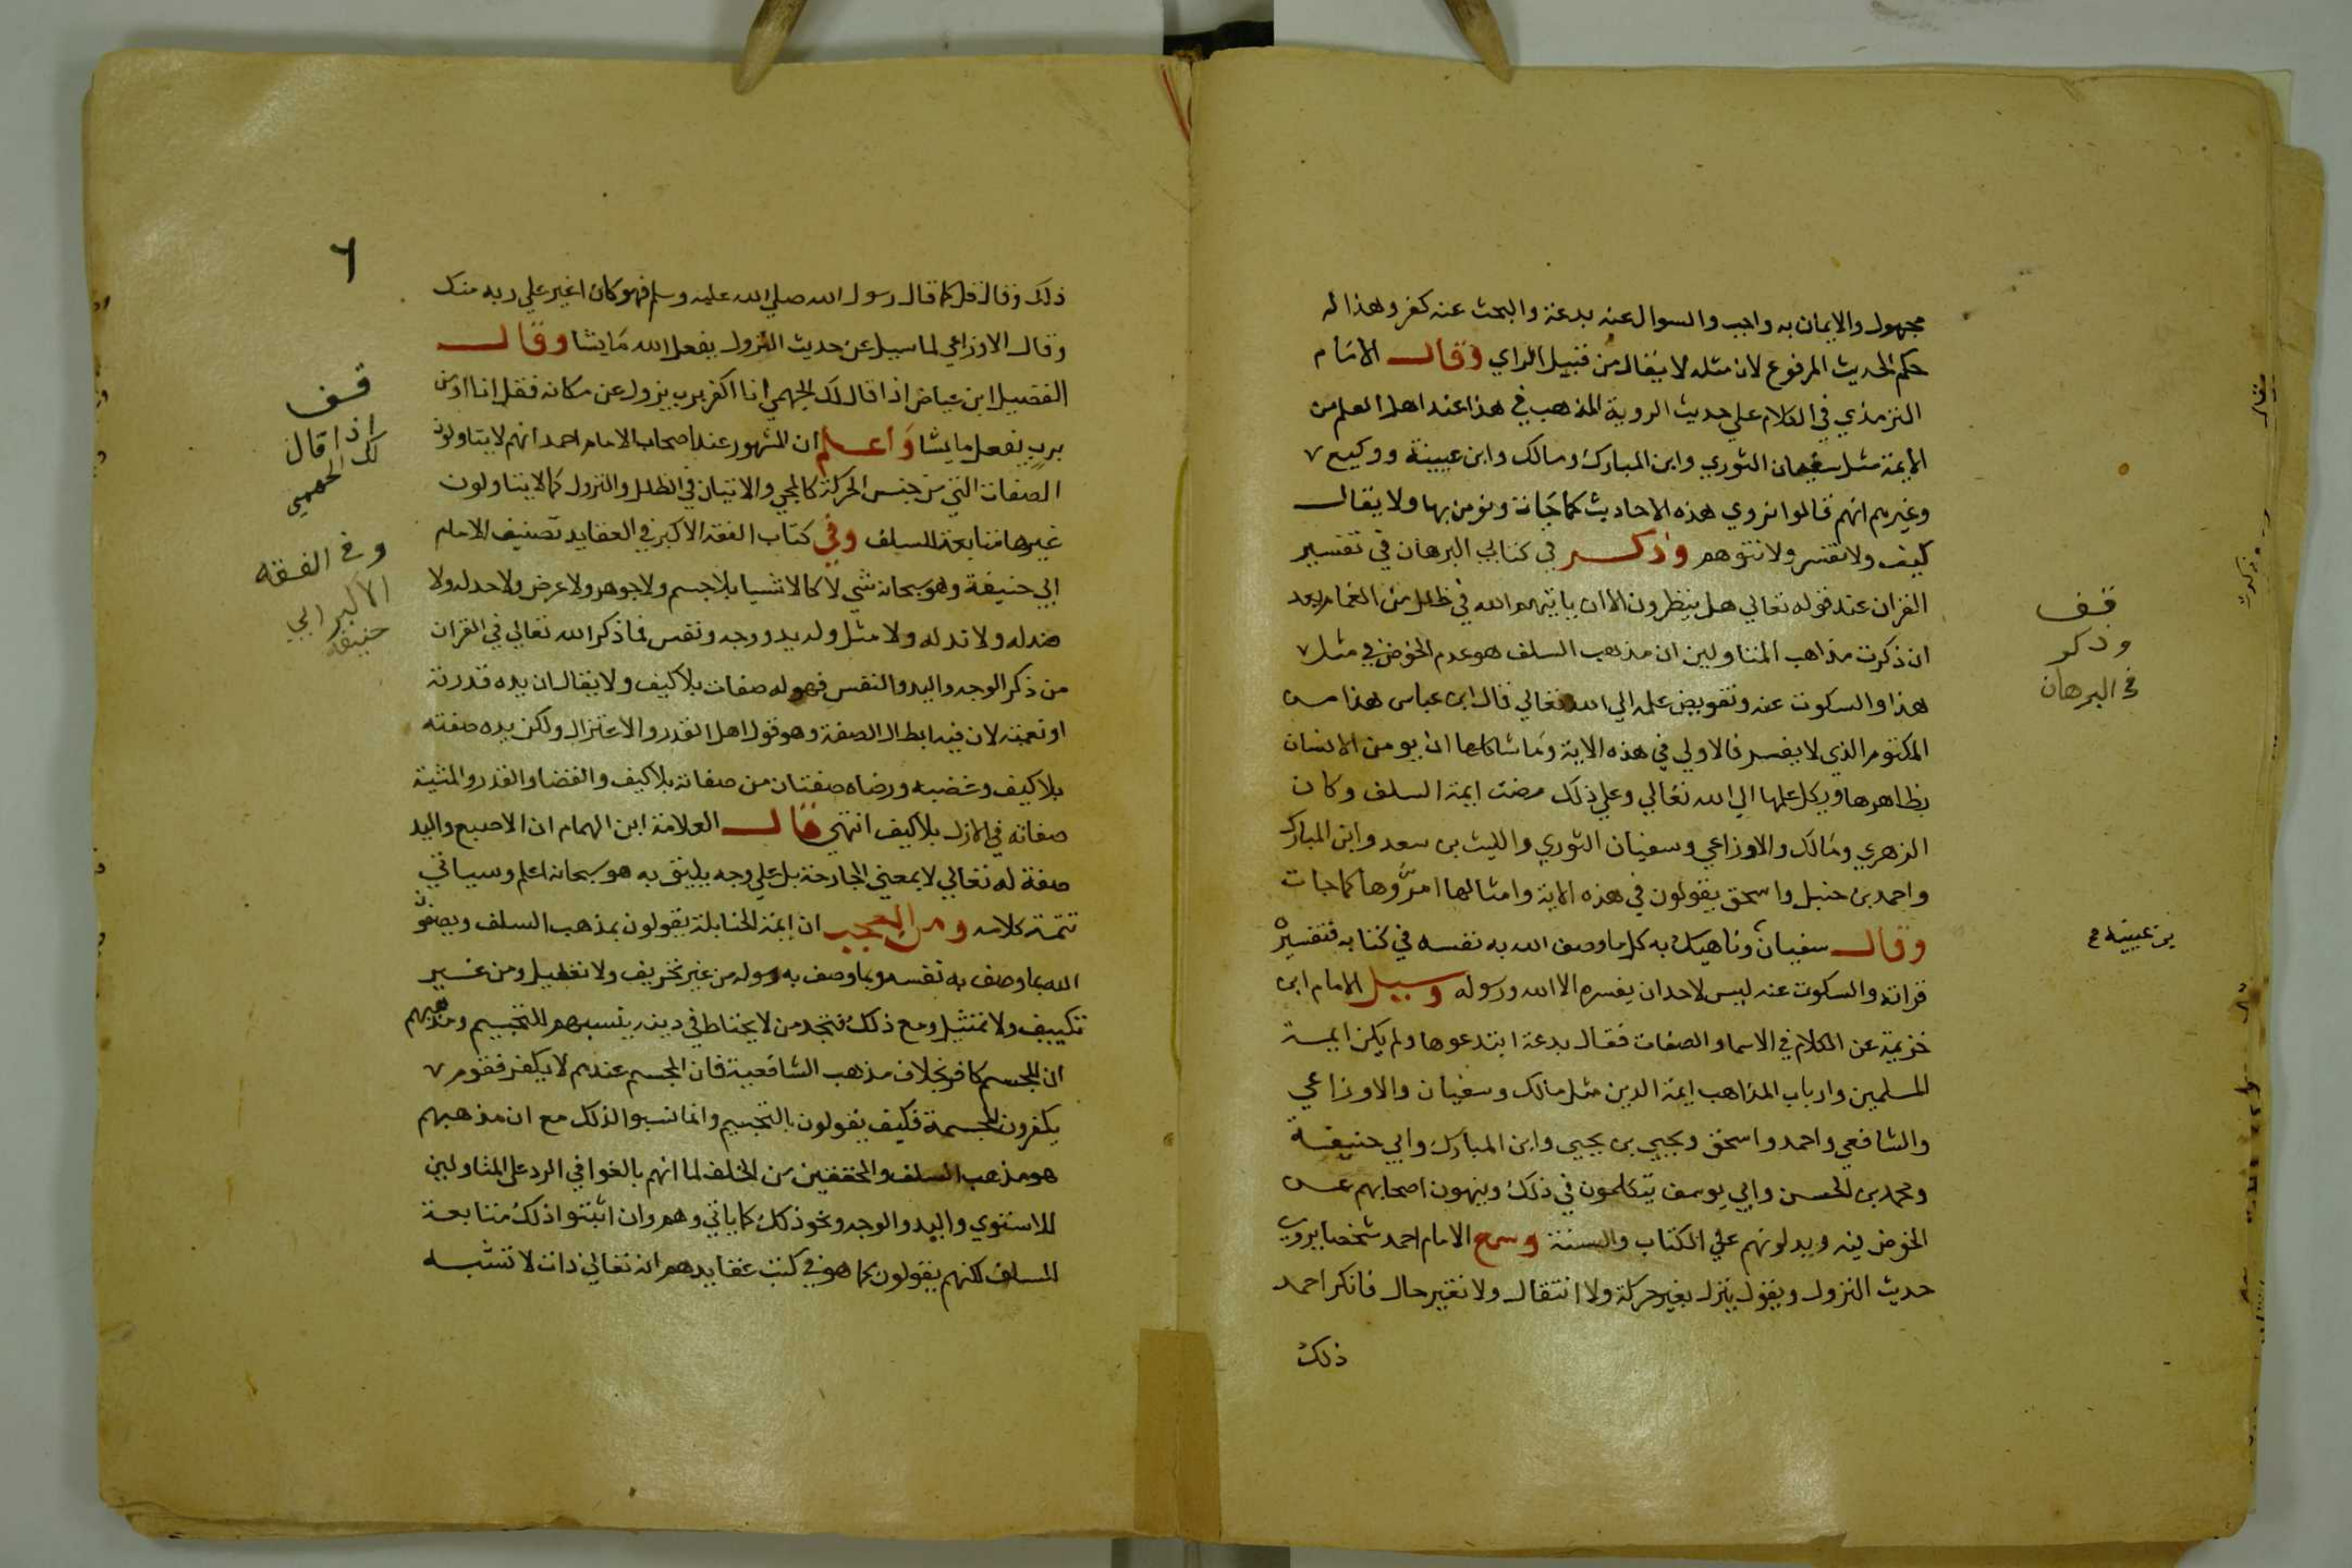 مجهول والايمان به واجب والسوال عنه بدعة والبحث عنه كفر وهذا له
حكم الحديث المرفوع لان مثله لا يقال من قبيل الراي وقال الامام
الترمذي في الكلام علي حديث الروية المذهب في هذا عند اهل العلم من
الايمة مثل سفيان الثوري وابن المبارك ومالك وابن عيينة ووكيع
وغيرهم انهم قالوا نروي هذه الاحاديث كما جات ونومن بها ولا يقال
كيف ولا تفسر ولا نتوهم وذكر في كتابي البرهان في تفسير
القران عند قوله تعالي هل ينظرون الا ان ياتيهم الله في ظلل من الغمام بعد
ان ذكرت مذاهب المتاولين ان مذهب السلف هو عدم الخوض في مثل
هذا والسكوت عنه وتفويض علمه الي الله تعالي قال ابن عباس هذا من
المكتوم الذي لا يفسر فالاولي في هذه الاية وما شاكلها ان يومن الانسان
بظاهرها ويكل علمها الي الله تعالي وعلي ذلك مضت ايمة السلف وكان
الزهري ومالك والاوزاعي وسفيان الثوري والليث بن سعد وابن المبارك
واحمد بن حنبل واسحق يقولون في هذه الاية وامثالها امروها كما جات
وقال سفيان وناهيك به كل ما وصف الله به نفسه في كتابه فتفسيره
قراته والسكوت عنه ليس لاحد ان يفسره الا الله ورسوله وسيل الامام ابن
خزيمة عن الكلام في الاسما والصفات فقال بدعة ابتدعوها ولم يكن ايمة
المسلمين وارباب المذاهب ايمة الدين مثل مالك وسفيان والاوزاعي
والشافعي واحمد واسحق ويحيي بن يحيي وابن المبارك وابي حنيفة
ومحمد بن الحسن وابي يوسف يتكلمون في ذلك وينهون اصحابهم عن
الخوض فيه ويدلونهم علي الكتاب والسنة وسمع الامام احمد شخصا يروي
حديث النزول ويقول ينزل بغير حركة ولا انتقال ولا تغير حال فانكر احمد
ذلك
قف
وذكر
في البرهان
بن عيينة صح
٦
ذلك وقال قل كما قال رسول الله صلي الله عليه وسلم فهو كان اغير علي ربه منك
وقال الاوزاعي لما سيل عن حديث النزول يفعل الله ما يشا وقال
الفضيل ابن عياض اذا قال لك الجهمي انا اكفر برب يزول عن مكانه فقل انا اومن
برب يفعل ما يشا واعلم ان المشهور عند اصحاب الامام احمد انهم لا يتاولون
الصفات التي من جنس الحركة كالمجي والاتيان في الظلل والنزول كما لا يتاولون
غيرها متابعة للسلف وفي كتاب الفقه الاكبر في العقايد تصنيف الامام
ابي حنيفة وهو سبحانه شي لا كالاشيا بلا جسم ولا جوهر ولا عرض ولا حد له ولا
ضد له ولا ند له ولا مثل وله يد ووجه ونفس فما ذكر الله تعالي في القران
من ذكر الوجه واليد والنفس فهو له صفات بلا كيف ولا يقال ان يده قدرته
او نعمته لان فيه ابطال الصفة وهو قول اهل القدر والاعتزال ولكن يده صفته
بلا كيف وغضبه ورضاه صفتان من صفاته بلا كيف والقضا والقدر والمشية
صفاته في الازل بلا كيف انتهي قال العلامة ابن الهمام ان الاصبع واليد
صفة له تعالي لا بمعني الجارحة بل علي وجه يليق به هو سبحانه اعلم وسياتي
تتمة كلامه ومن العجب ان ايمة الحنابلة يقولون بمذهب السلف ويصفون
الله بما وصف به نفسه وبما وصف به رسوله من غير تحريف ولا تعطيل ومن غير
تكييف ولا تمثيل ومع ذلك فتجد من لا يحتاط في دينه ينسبهم للتجسيم ومذهبهم
ان المجسم كافر بخلاف مذهب الشافعية فان المجسم عندهم لا يكفر فقوم
يكفرون المجسمة فكيف يقولون بالتجسيم وانما نسبوا لذلك مع ان مذهبهم
هو مذهب السلف والمحققين من الخلف لما انهم بالغوا في الرد علي المتاولين
للاستوي واليد والوجه ونحو ذلك كما ياتي وهم وان اثبتوا ذلك متابعة
للسلف لكنهم يقولون كما هو في كتب عقايدهم انه تعالي ذات لا تشبه
قف
اذا قال
لك الجهمي
وفي الفقه
الاكبر ابي
حنيفة